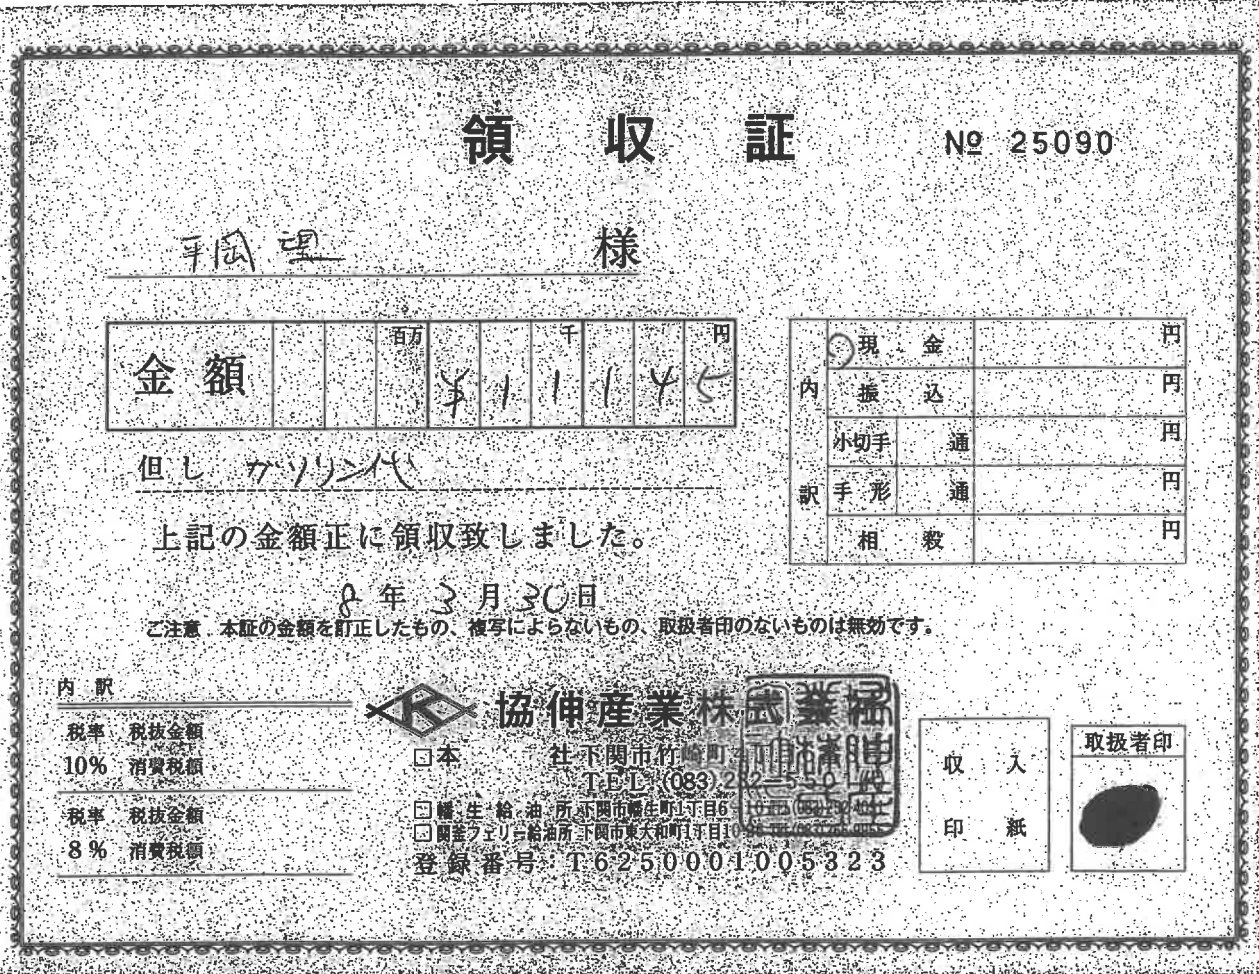 領収証
№ 25090
平岡 望 様
金額 百万 千 円
¥11145
但し ガソリン代
上記の金額正に領収致しました。
8年3月30日
ご注意 本証の金額を訂正したもの、複写によらないもの、取扱者印のないものは無効です。
内訳
現金 円
振込 円
小切手 通 円
手形 通 円
相殺 円
内訳
税率 税抜金額
10% 消費税額
税率 税抜金額
8% 消費税額
K 協伸産業株式会社
□本 社 下関市竹崎町
TEL (083)
□幡生給油所 下関市幡生町1丁目6
□関釜フェリー給油所 下関市東大和町1丁目10
登録番号:T6250001005323
収入
印紙
取扱者印